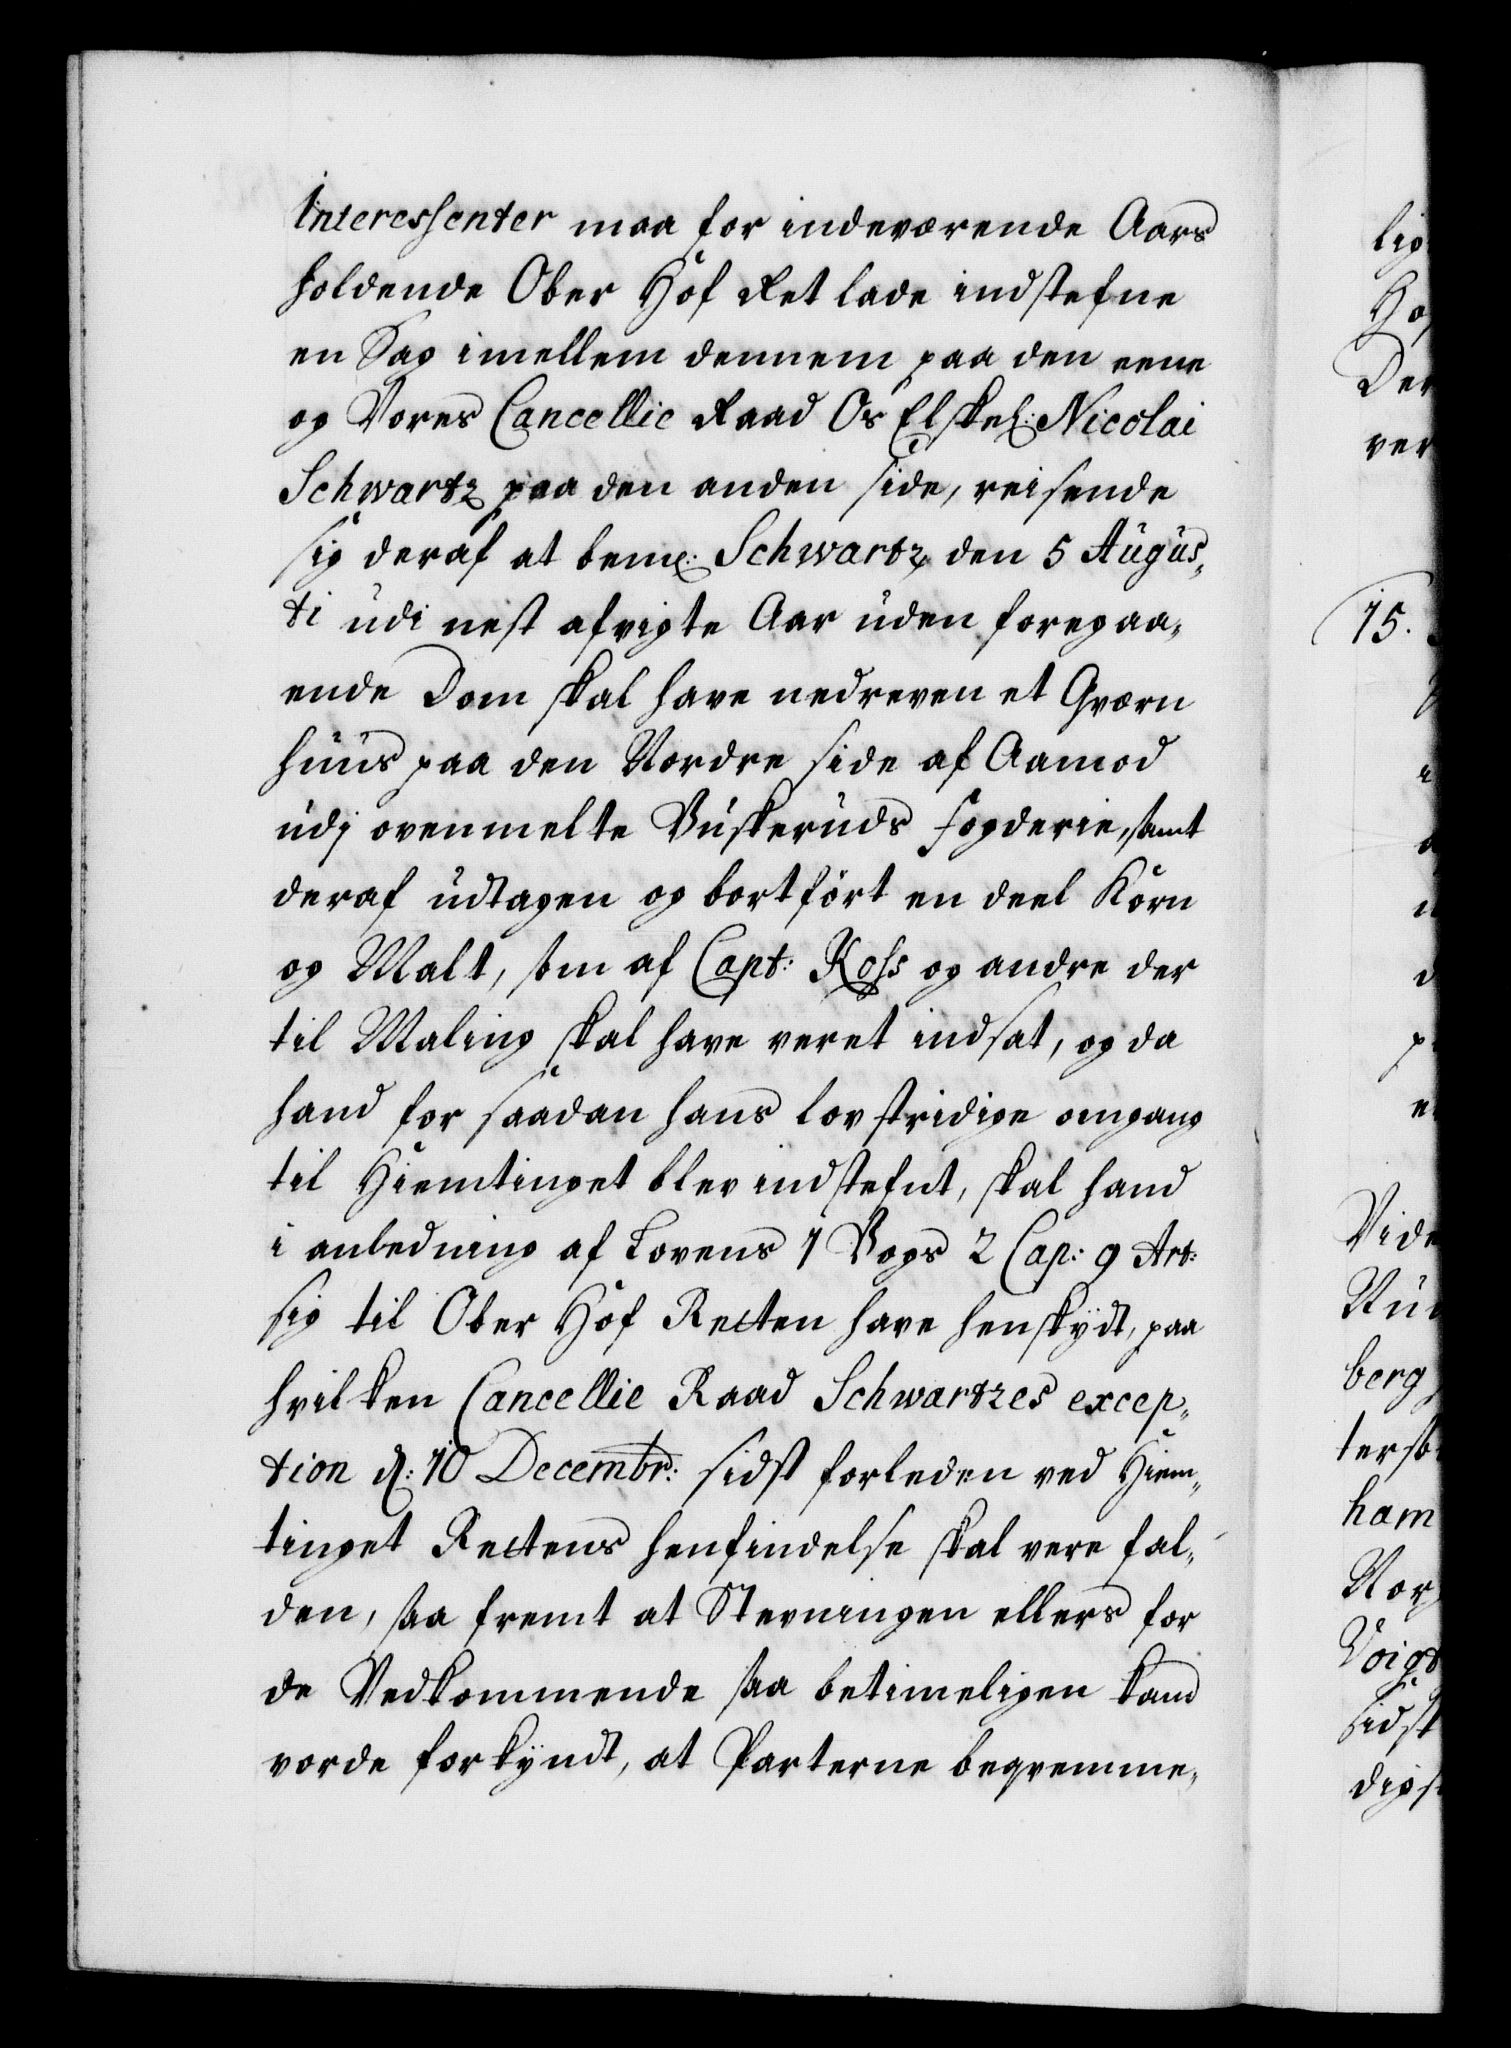 Interessenter maa for indeværende Aars
holdende Ober Hof Ret lade indstefne
en Sag imellem dennem paa den eene
og Vores Cancellie Raad Os Elskel: Nicolai
Schwartz paa den anden side, reisende
sig deraf at bem.t: Schwartz den 5 Augus„
ti udi nest afvigte Aar uden foregaa„
ende Dom skal have nedreven et Qværn
huus paa den Nordre side af Aamod
udj ovenmelte Buskeruds Fogderie, samt
deraf udtagen og bortført en deel Korn
og Malt, som af Capt: Koss og andre der
til Maling skal have veret indsat, og da
hand for saadan hans lovstridige omgang
til Hiemtinget blev indstefnt, skal hand
i anledning af Lovens 1 Bogs 2 Cap: 9 Art:
sig til Ober Hof Retten have henskydt, paa
hvilken Cancellie Raad Schwartzes excep„
tion d: 10 Decembr: sidst forleden ved Hiem„
tinget Rettens henfindelse skal vere fal„
den, saa fremt at Stevningen ellers for
de Vedkommende saa betimeligen kand
vorde forkyndt, at Parterne beqvemme„
lig
Hof
Der
ver
15.
Vide
berg
ters
ham
Nor
Voigt
sidst
digs